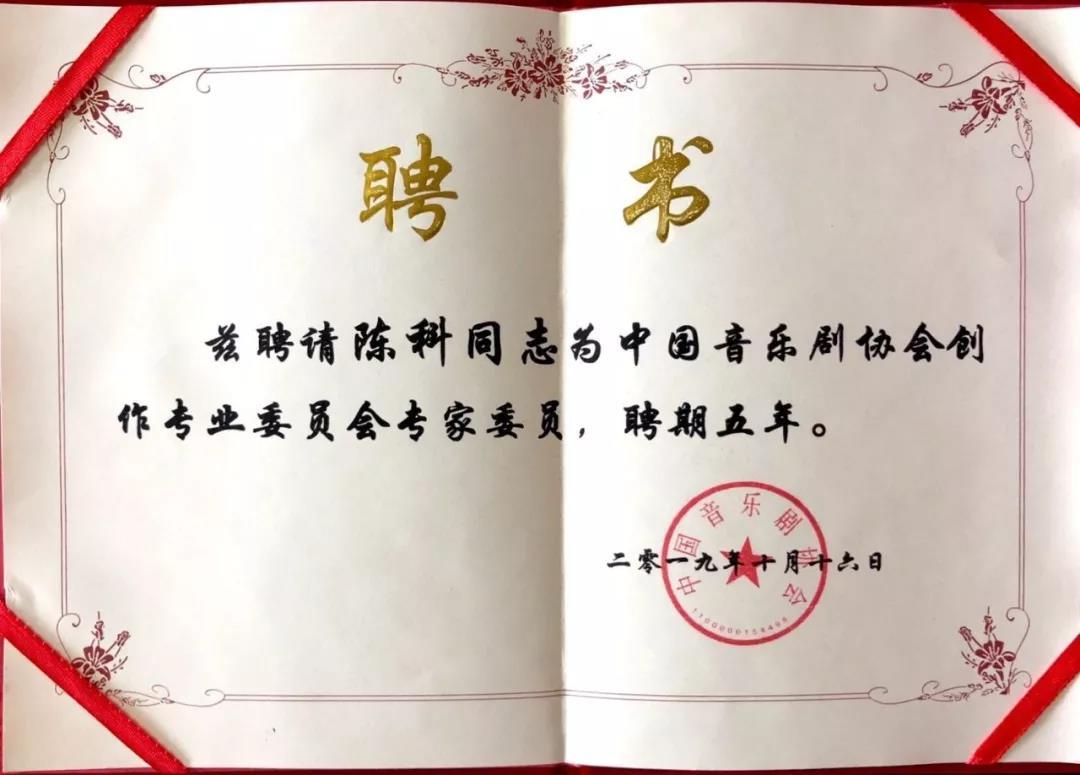 聘书
兹聘请陈科同志为中国音乐剧协会创
作专业委员会专家委员，聘期五年。
中国音乐剧协会
二零一九年十月十六日